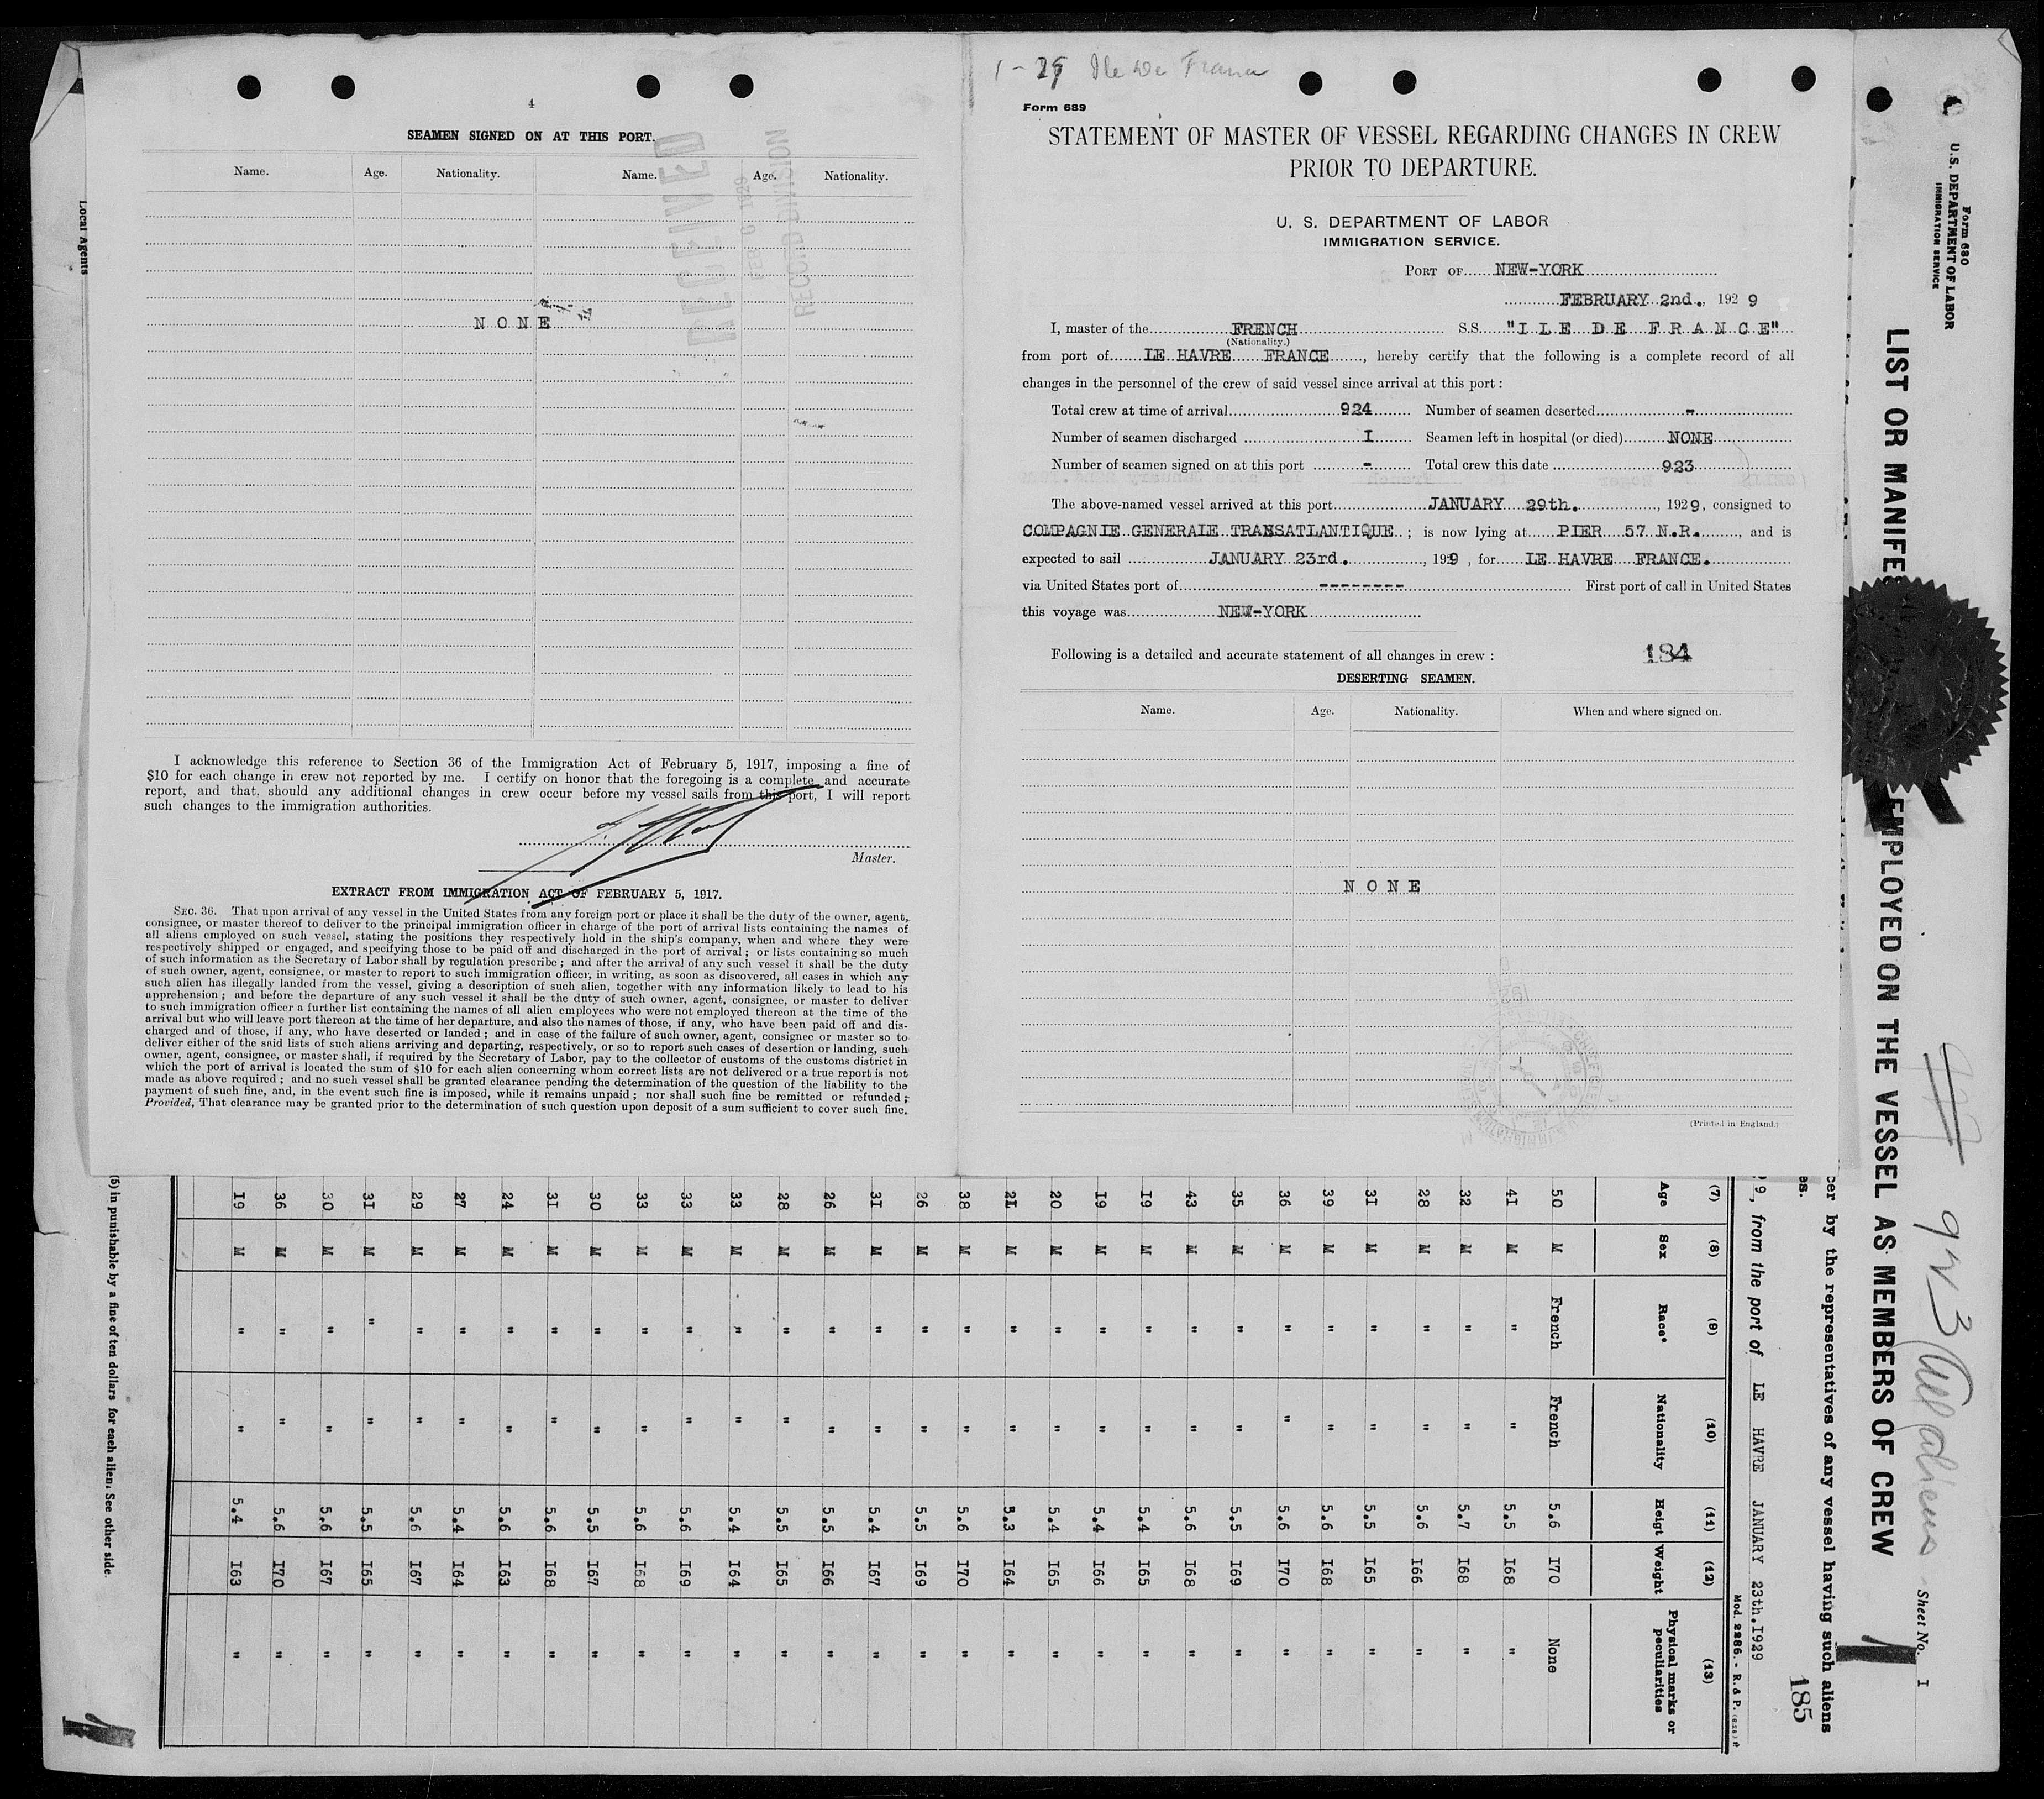 4
SEAMEN SIGNED ON AT THIS PORT.
Name. Age. Nationality. Name. Age. Nationality.
NONE
I acknowledge this reference to Section 36 of the Immigration Act of February 5, 1917, imposing a fine of
$10 for each change in crew not reported by me. I certify on honor that the foregoing is a complete and accurate
report, and that, should any additional changes in crew occur before my vessel sails from this port, I will report
such changes to the immigration authorities.
Master.
EXTRACT FROM IMMIGRATION ACT OF FEBRUARY 5, 1917.
SEC. 36. That upon arrival of any vessel in the United States from any foreign port or place it shall be the duty of the owner, agent,
consignee, or master thereof to deliver to the principal immigration officer in charge of the port of arrival lists containing the names of
all aliens employed on such vessel, stating the positions they respectively hold in the ship's company, when and where they were
respectively shipped or engaged, and specifying those to be paid off and discharged in the port of arrival; or lists containing so much
of such information as the Secretary of Labor shall by regulation prescribe; and after the arrival of any such vessel it shall be the duty
of such owner, agent, consignee, or master to report to such immigration officer, in writing, as soon as discovered, all cases in which any
such alien has illegally landed from the vessel, giving a description of such alien, together with any information likely to lead to his
apprehension; and before the departure of any such vessel it shall be the duty of such owner, agent, consignee, or master to deliver
to such immigration officer a further list containing the names of all alien employees who were not employed thereon at the time of the
arrival but who will leave port thereon at the time of her departure, and also the names of those, if any, who have been paid off and dis-
charged and of those, if any, who have deserted or landed; and in case of the failure of such owner, agent, consignee or master so to
deliver either of the said lists of such aliens arriving and departing, respectively, or so to report such cases of desertion or landing, such
owner, agent, consignee, or master shall, if required by the Secretary of Labor, pay to the collector of customs of the customs district in
which the port of arrival is located the sum of $10 for each alien concerning whom correct lists are not delivered or a true report is not
made as above required; and no such vessel shall be granted clearance pending the determination of the question of the liability to the
payment of such fine, and, in the event such fine is imposed, while it remains unpaid; nor shall such fine be remitted or refunded;
Provided, That clearance may be granted prior to the determination of such question upon deposit of a sum sufficient to cover such fine.
RECEIVED
FEB 6 1929
RECORD DIVISION
Local Agents
1-29 Ile De France
Form 689
STATEMENT OF MASTER OF VESSEL REGARDING CHANGES IN CREW
PRIOR TO DEPARTURE.
U. S. DEPARTMENT OF LABOR
IMMIGRATION SERVICE.
PORT OF NEW-YORK
FEBRUARY 2nd., 1929
I, master of the FRENCH S.S. "ILE DE FRANCE"
(Nationality.)
from port of LE HAVRE FRANCE, hereby certify that the following is a complete record of all
changes in the personnel of the crew of said vessel since arrival at this port:
Total crew at time of arrival 924 Number of seamen deserted -
Number of seamen discharged I Seamen left in hospital (or died) NONE
Number of seamen signed on at this port - Total crew this date 923
The above-named vessel arrived at this port JANUARY 29th., 1929, consigned to
COMPAGNIE GENERALE TRANSATLANTIQUE; is now lying at PIER 57 N.R., and is
expected to sail JANUARY 23rd., 199, for LE HAVRE FRANCE.
via United States port of -------- First port of call in United States
this voyage was NEW-YORK
Following is a detailed and accurate statement of all changes in crew: 184
DESERTING SEAMEN.
Name. Age. Nationality. When and where signed on.
NONE
(Printed in England.)
Form 680
U.S. DEPARTMENT OF LABOR
IMMIGRATION SERVICE
LIST OR MANIFES EMPLOYED ON THE VESSEL AS MEMBERS OF CREW
923 aliens
Sheet No. I
185
cer by the representatives of any vessel having such aliens
es.
9, from the port of LE HAVRE JANUARY 23th.I929
Mod. 2286. - R. d P.
(7) (8) (9) (10) (11) (12) (13)
Age Sex Race* Nationality Heigt Weight Physical marks or peculiarities
50 M French French 5.6 I70 None
4I M " " 5.5 I68 "
32 M " " 5.7 I68 "
28 M " " 5.6 I66 "
3I M " " 5.5 I65 "
39 M " " 5.6 I68 "
36 M " " 5.6 I70 "
35 M " " 5.5 I69 "
43 M " " 5.6 I68 "
I9 M " " 5.4 I65 "
I9 M " " 5.4 I66 "
20 M " " 5.4 I65 "
2I M " " 5.3 I64 "
38 M " " 5.6 I70 "
26 M " " 5.5 I69 "
3I M " " 5.4 I67 "
26 M " " 5.5 I66 "
28 M " " 5.5 I65 "
33 M " " 5.4 I64 "
33 M " " 5.6 I69 "
33 M " " 5.6 I68 "
30 M " " 5.5 I67 "
3I M " " 5.6 I68 "
24 M " " 5.6 I63 "
27 M " " 5.4 I64 "
29 M " " 5.6 I67 "
3I M " " 5.5 I65 "
30 M " " 5.6 I67 "
36 M " " 5.6 I70 "
I9 M " " 5.4 I63 "
(5) in punishable by a fine of ten dollars for each alien. See other side.